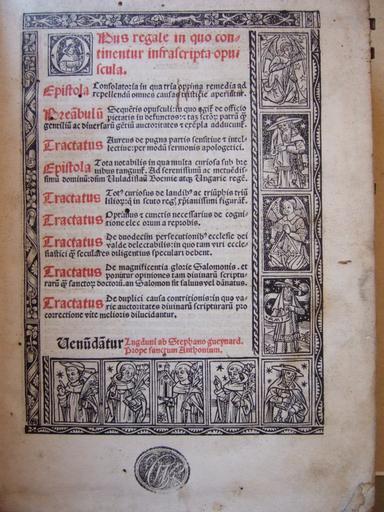 Opus regale in quo con
tinentur infrascripta opu
scula.
Epistola Consolatoria in qua tria oppina remedia ad
repellendū omnes causas tristicie aperiūtur.
Preābulū Sequētis opusculi: in quo agit͛ de officio
pietatis in defunctos: et tā scōꝝ patrū ꝙ
gentiliū ac diuersarū gētiū auctoritates et exēpla adducunt͛.
Tractatus Aureus de pugna partis sensitiue et intel
lectiue: per modū sermonis apologetici.
Epistola Tota notabilis in qua multa curiosa sub bre
uibus tangunt͛. Ad serenissimū ac metuendis
simū dominū: dñm Vuladislaū Boemie atqȝ Ungarie regē.
Tractatus Totꝰ curiosus de laudibꝰ ac triūphis triū
liliorū: in scuto regis xp̄ianissimi figurat͛.
Tractatus Optimus et cunctis necessarius de cogni
tione electorum a reprobis.
Tractatus De duodecim persecutionibꝰ ecclesie dei
valde delectabilis: in quo tam viri eccle
siastici ꝙ seculares diligentius speculari debent.
Tractatus De magnificentia glorie Salomonis. et
ponūtur opiniones tam diuinarū scriptu
rarū ꝙ sanctoꝝ doctorū. an Salomon sit saluus vel dānatus.
Tractatus De duplici causa contritionis: in quo va
rie auctoritates diuinarū scripturarū pro
correctione vite melioris dilucidantur.
Uenūdātur Lugduni ab Stephano gueynard.
Prope sanctum Anthonium.